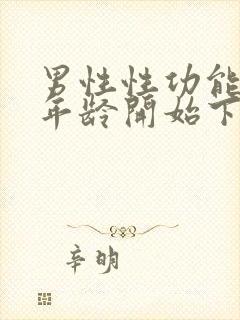 男性性功能
年龄開始下
辛明